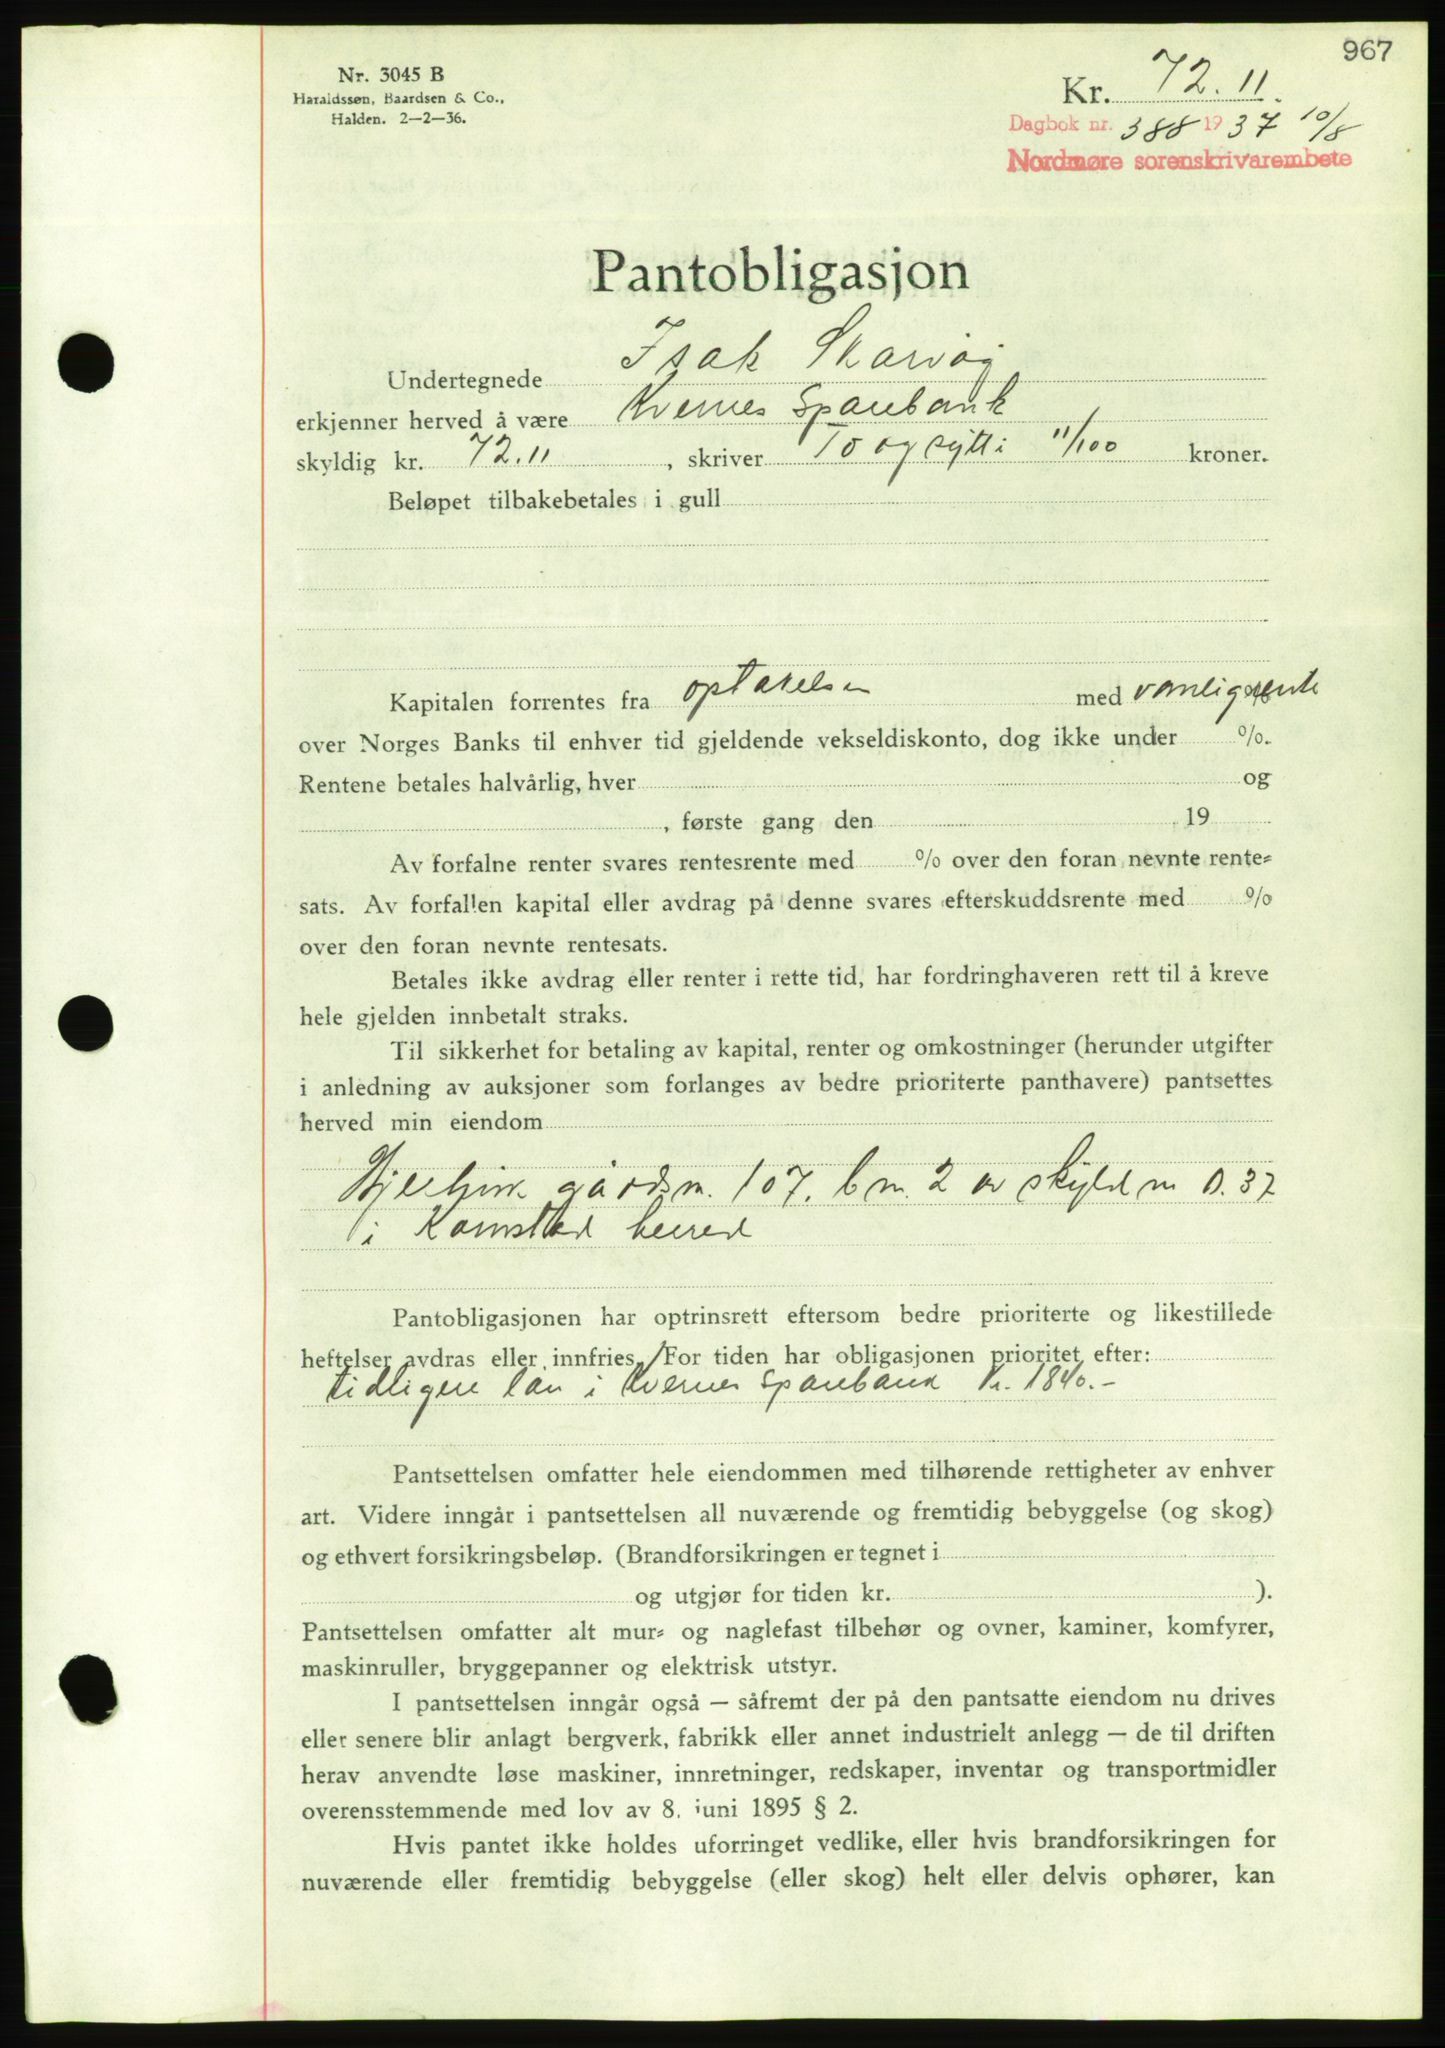 967
Nr. 3045 B
Haraldssøn, Baardsen & Co.,
Halden. 2—2—36.
Kr. 72.11.
Dagbok nr. 388 1937 10/8
Nordmøre sorenskrivarembete
Pantobligasjon
Undertegnede Isak Skarvøg
erkjenner herved å være Kvernes Sparebank
skyldig kr. 72.11, skriver To og sytti 11/100 kroner.
Beløpet tilbakebetales i gull
Kapitalen forrentes fra optakelsen med vanlig rente
over Norges Banks til enhver tid gjeldende vekseldiskonto, dog ikke under %.
Rentene betales halvårlig, hver og
, første gang den 19
Av forfalne renter svares rentesrente med % over den foran nevnte rente=
sats. Av forfallen kapital eller avdrag på denne svares efterskuddsrente med %
over den foran nevnte rentesats.
Betales ikke avdrag eller renter i rette tid, har fordringhaveren rett til å kreve
hele gjelden innbetalt straks.
Til sikkerhet for betaling av kapital, renter og omkostninger (herunder utgifter
i anledning av auksjoner som forlanges av bedre prioriterte panthavere) pantsettes
herved min eiendom
gårdsn. 107. bn. 2 av skyld m 0.37
i Kornstad herred
Pantobligasjonen har optrinsrett eftersom bedre prioriterte og likestillede
heftelser avdras eller innfries. / For tiden har obligasjonen prioritet efter:
tidligere lån i Kvernes Sparebank kr. 1840.-
Pantsettelsen omfatter hele eiendommen med tilhørende rettigheter av enhver
art. Videre inngår i pantsettelsen all nuværende og fremtidig bebyggelse (og skog)
og ethvert forsikringsbeløp. (Brandforsikringen er tegnet i
og utgjør for tiden kr. ).
Pantsettelsen omfatter alt mur= og naglefast tilbehør og ovner, kaminer, komfyrer,
maskinruller, bryggepanner og elektrisk utstyr.
I pantsettelsen inngår også — såfremt der på den pantsatte eiendom nu drives
eller senere blir anlagt bergverk, fabrikk eller annet industrielt anlegg — de til driften
herav anvendte løse maskiner, innretninger, redskaper, inventar og transportmidler
overensstemmende med lov av 8. juni 1895 § 2.
Hvis pantet ikke holdes uforringet vedlike, eller hvis brandforsikringen for
nuværende eller fremtidig bebyggelse (eller skog) helt eller delvis ophører, kan